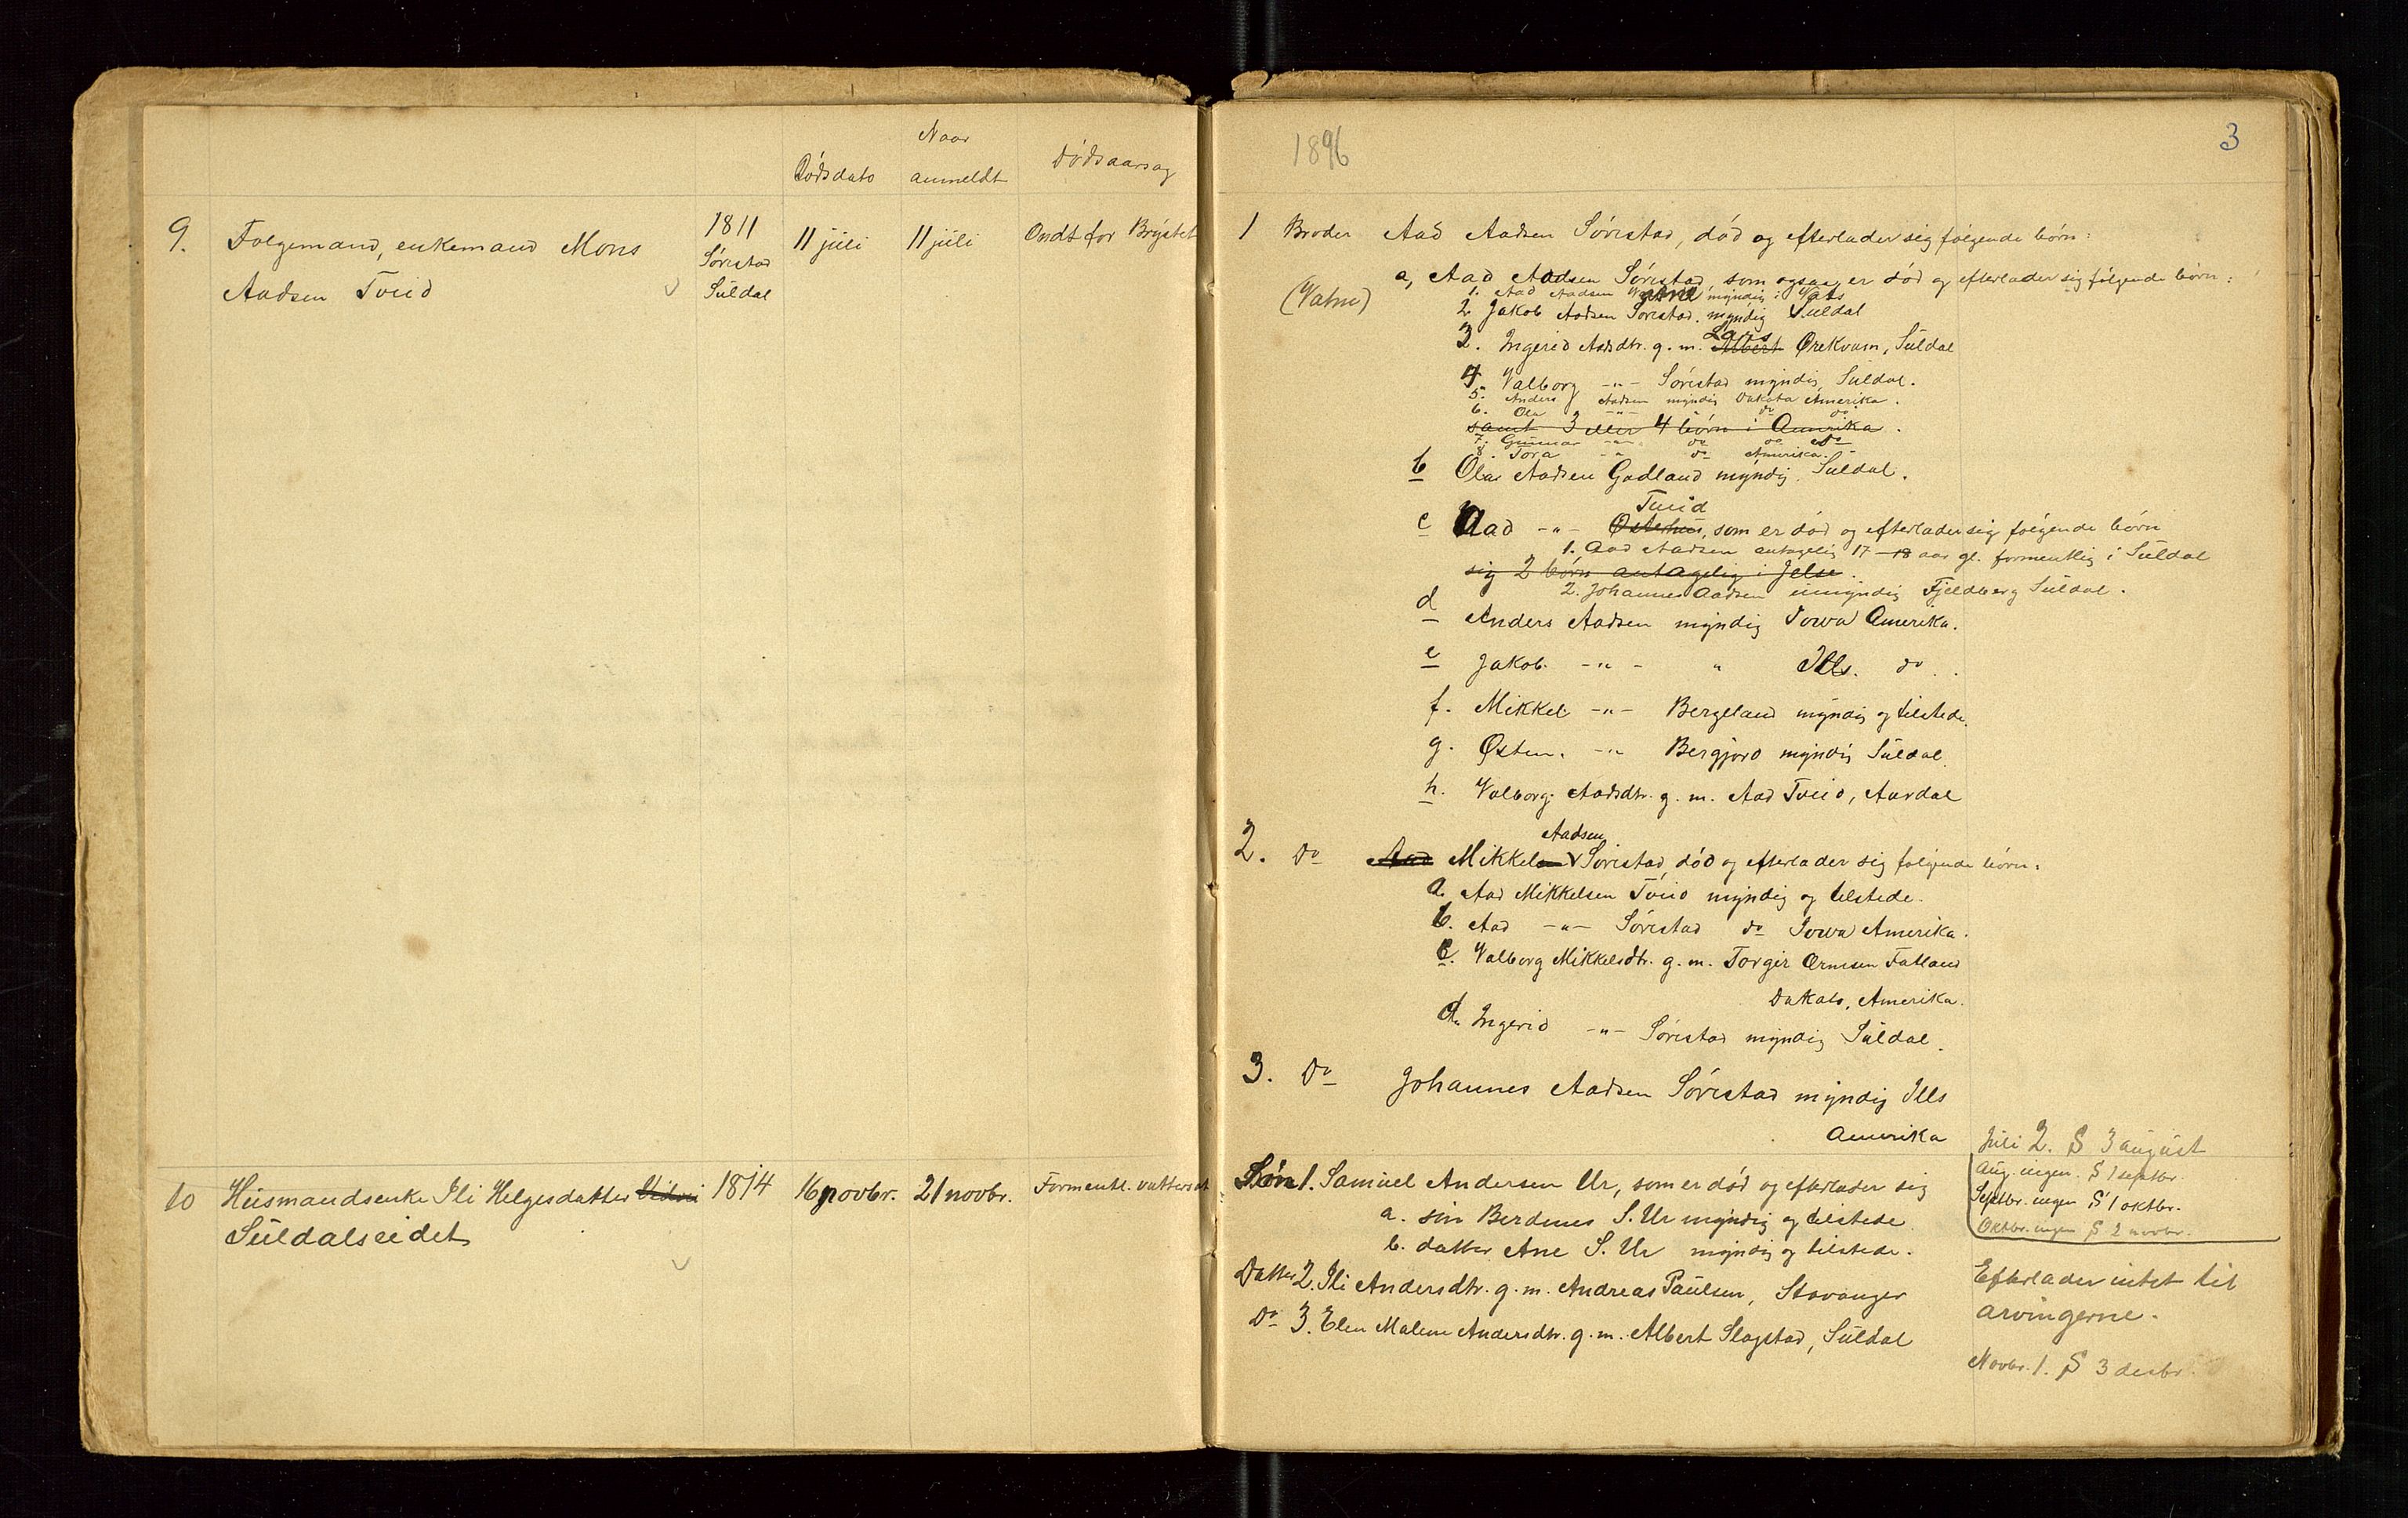 Naar
Dødsdato anmeldt Dødsaarsag
9. Folgemand, enkemand Mons 1811 11 juli 11 juli Ondt for Brystet
Aadsen Tveid Sørestad
Suldal
10 Husmandsenke Ili Helgesdatter 1814 16 novbr. 21 novbr. Formentl. vattersot
Suldalseidet
1896 3
1 Broder Aad Aadsen Sørestad, død og efterlader sig følgende børn:
a, Aad Aadsen Sørestad, som ogsaa er død og efterlader sig følgende børn:
(Vatne) 1. Aad Aadsen Vatne myndig i Vats
2 Jakob Aadsen Sørestad. myndig Suldal
3. Ingerid Aadsdtr. g. m. Albert Lars Ørekvam, Suldal
4. Valborg -"- Sørestad myndig, Suldal.
5. Anders Aadsen myndig Dakota Amerika.
6. Ola -"- " do do
samt 3 eller 4 børn i Amerika.
7. Gunnar -"- do do do
8. Tora -"- do Amerika.
b Olav Aadsen Gadland myndig. Suldal.
Tveid
c Aad -"- Østerhus, som er død og efterlader sig følgende børn
1. Aad Aadsen antagelig 17-18 aar gl. formentlig i Suldal
sig 2 børn antagelig i Jelse.
2. Johannes Aadsen umyndig Fjeldberg Suldal.
d Anders Aadsen myndig Iowa Amerika.
e Jakob -"- " Ills. do.
f. Mikkel -"- Bergeland myndig og tilstede.
g. Østen. -"- Bergjord myndig Suldal.
h. Valborg Aadsdtr. g. m. Aad Tveid, Aardal
Aadsen
2. Do Aad Mikkel Sørestad, død og efterlader sig følgende børn:
a. Aad Mikkelsen Tveid myndig og tilstede.
b. Aad -"- Sørestad do Iowa Amerika.
c. Valborg Mikkelsdtr. g. m. Torger Ormsen Fatland
Dakota, Amerika.
d. Ingerid -"- Sørestad myndig Suldal.
3. Do Johannes Aadsen Sørestad myndig Ills
Amerika
Juli 2. S 3 august
Aug. ingen. S 1 septbr.
Septbr. ingen S 1 oktbr.
Oktbr. ingen S 2 novbr.
Søn 1. Samuel Andersen Ur, som er død og efterlader sig
a. søn Berdines S. Ur myndig og tilstede
b. datter Ane S. Ur myndig og tilstede.
Datter 2. Ili Andersdtr. g. m. Andreas Paulsen, Stavanger
Do 3. Elen Malene Andersdtr. g. m. Albert Slagstad, Suldal
Efterlader intet til
arvingerne.
Novbr. 1. S 3 decbr.